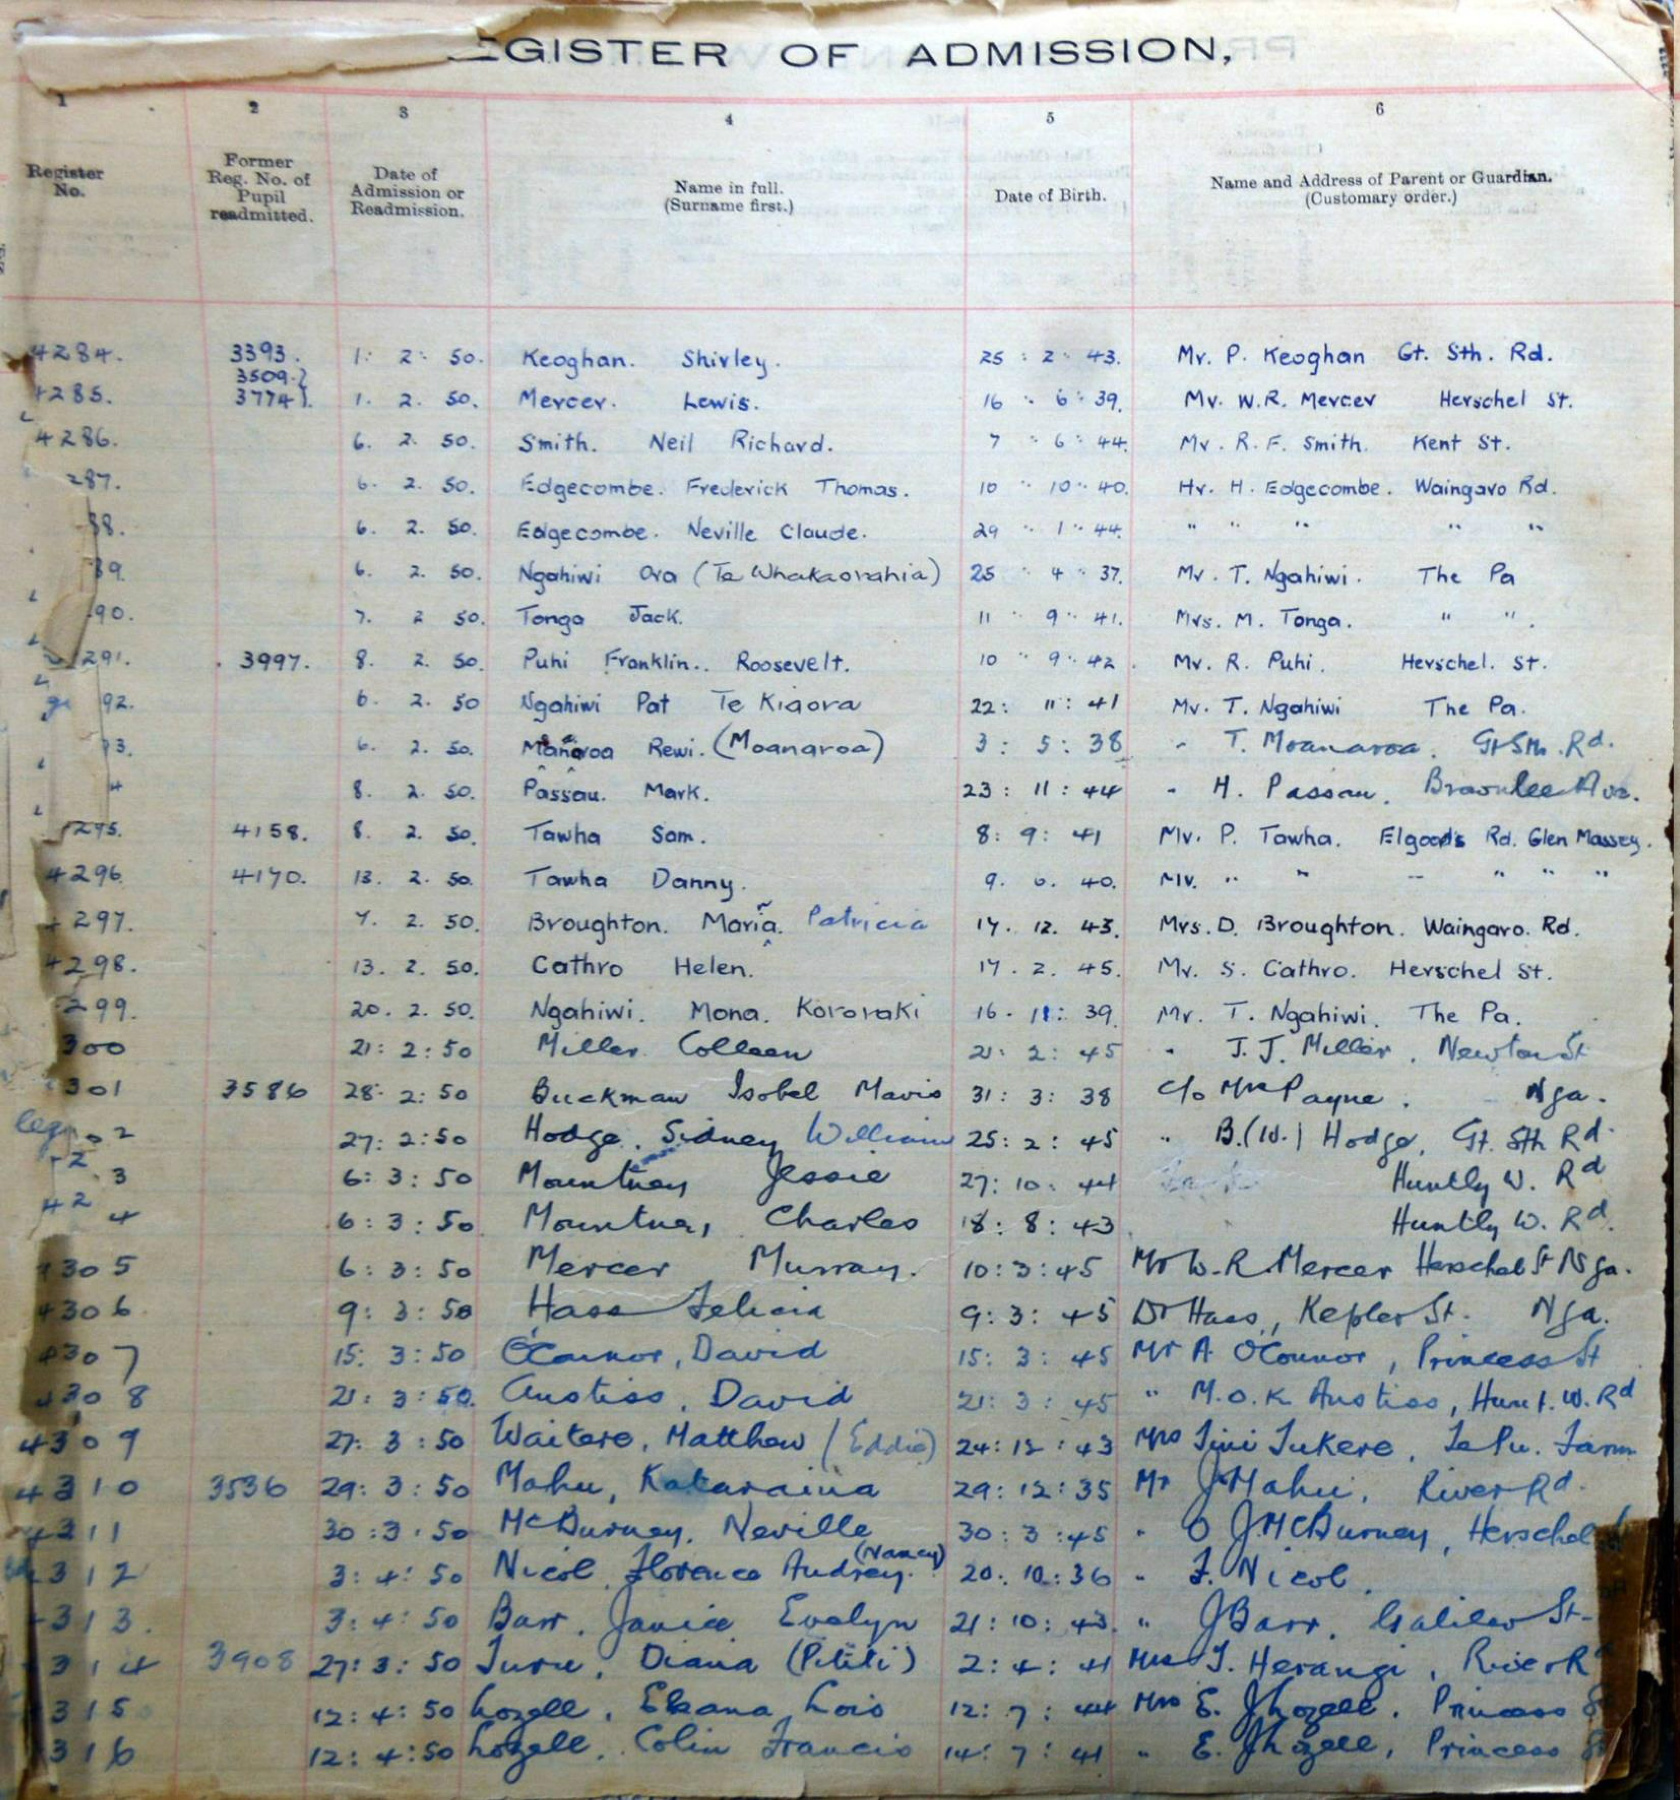 EGISTER OF ADMISSION,
1 2 3 4 5 6
Register No. Former Reg. No. of Pupil readmitted. Date of Admission or Readmission. Name in full. (Surname first.) Date of Birth. Name and Address of Parent or Guardian. (Customary order.)
4284. 3393. 1: 2: 50. Keoghan. Shirley. 25 : 2 : 43. Mr. P. Keoghan Gt. Sth. Rd.
3509.}
4285. 3774}. 1. 2. 50. Mercer. Lewis. 16 : 6 : 39. Mr. W.R. Mercer Herschel St.
4286. 6. 2. 50. Smith. Neil Richard. 7 : 6 : 44. Mr. R. F. Smith. Kent St.
287. 6. 2. 50. Edgecombe. Frederick Thomas. 10 : 10 : 40. Mr. H. Edgecombe. Waingaro Rd.
88. 6. 2. 50. Edgecombe. Neville Claude. 29 : 1 : 44. " " " " "
89. 6. 2. 50. Ngahiwi Ora (Te Whakaorahia) 25 : 4 : 37. Mr. T. Ngahiwi. The Pa
90. 7. 2 50. Tonga Jack. 11 : 9 : 41. Mrs. M. Tonga. " ".
291. 3997. 8. 2. 50. Puhi Franklin.. Roosevelt. 10 : 9 : 42. Mr. R. Puhi. Herschel. St.
92. 6. 2. 50 Ngahiwi Pat Te Kiaora 22: 11: 41 Mr. T. Ngahiwi The Pa.
93. 6. 2. 50. Rewi. (Moanaroa) 3 : 5 : 38 " T. Moanaroa. Gt Sth. Rd.
4 8. 2. 50. Passau. Mark. 23 : 11 : 44 " H. Passau. Brownlee Ave.
295. 4158. 8. 2. 50. Tawha Sam. 8: 9: 41 Mr. P. Tawha. Elgood's Rd. Glen Massey.
4296. 4170. 13. 2. 50. Tawha Danny. 9. 6. 40. Mr. " " " " " "
4297. 7. 2. 50. Broughton. Maria. Patricia 17. 12. 43. Mrs. D. Broughton. Waingaro. Rd.
4298. 13. 2. 50. Cathro Helen. 17. 2. 45. Mr. S. Cathro. Herschel St.
299. 20. 2. 50. Ngahiwi. Mona. Kororaki 16. 11: 39. Mr. T. Ngahiwi. The Pa.
300 21: 2: 50 Miller Colleen 21: 2: 45 " J. J. Miller. Newton St
301 3586 28: 2: 50 Buckman Isobel Mavis 31: 3: 38 C/o Mrs Payne. Nga.
2 27: 2: 50 Hodge, Sidney William 25: 2: 45 " B.(W.) Hodge, Gt. Sth Rd.
3 6: 3: 50 Mountney Jessie 27: 10: 44 Huntly W. Rd
4 6: 3: 50 Mountney Charles 18: 8: 43 Huntly W. Rd.
4305 6: 3: 50 Mercer Murray. 10: 3: 45 Mr W. R. Mercer Herschel St Nga.
4306 9: 3: 50 Hass Felicia 9: 3: 45 Dr Hass, Kepler St. Nga.
4307 15: 3: 50 O'Connor, David 15: 3: 45 Mr A O'Connor, Princess St
4308 21: 3: 50. Anstiss, David 21: 3: 45 " M.O.K Anstiss, Hunt. W. Rd
4309 27: 3: 50 Waitere, Matthew (Eddie) 24: 12: 43 Mrs Tukere, Te Pu. Farm
4310 3536 29: 3: 50 Mahu, Kataraina 29: 12: 35 Mr J Mahu, River Rd.
4311 30: 3: 50 McBurney, Neville 30: 3: 45 " O J McBurney, Herschel
312 3: 4: 50 Nicol, Florence Audrey. (Nancy) 20: 10: 36 " F. Nicol.
313. 3: 4: 50 Barr, Janice Evelyn 21: 10: 43. " J Barr, Galileo St.
314 3908 27: 3: 50 Turu, Diana (Pititi) 2: 4: 41 Mrs T. Herangi, River R
315 12: 4: 50 Lozell, Lois 12: 7: 44 Mrs E. J Lozell, Princess S
316 12: 4: 50 Lozell, Colin Francis 14: 7: 41 " E. J Lozell, Princess S